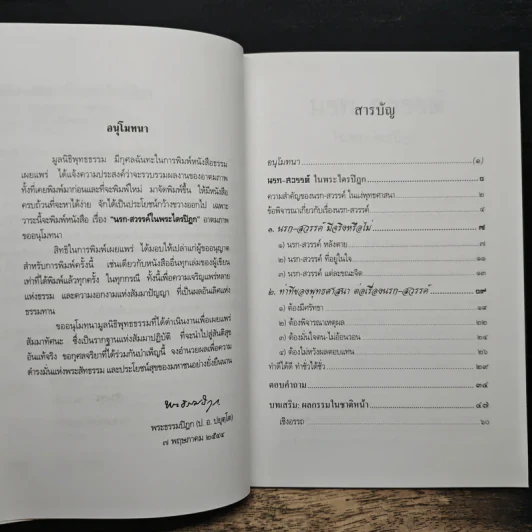 อนุโมทนา
มูลนิธิพุทธธรรม มีกุศลฉันทะในการพิมพ์หนังสือธรรม
เผยแพร่ ได้แจ้งความประสงค์ว่าจะรวบรวมผลงานของอาตมภาพ
ทั้งที่เคยพิมพ์มาก่อนและที่จะพิมพ์ใหม่ มาจัดพิมพ์ขึ้น ให้มีหนังสือ
ครบถ้วนที่จะหาได้ง่าย จักได้เป็นประโยชน์กว้างขวางออกไป เฉพาะ
วาระนี้จะพิมพ์หนังสือ เรื่อง "นรก-สวรรค์ในพระไตรปิฎก" อาตมภาพ
ขออนุโมทนา
สิทธิในการพิมพ์เผยแพร่ ได้มอบให้เปล่าแก่ผู้ขออนุญาต
สำหรับการพิมพ์ครั้งนี้ เช่นเดียวกับหนังสืออื่นทุกเล่มของผู้เขียน
เท่าที่ได้พิมพ์แล้วทั่วไป ในทุกกรณี ทั้งนี้เพื่อความเจริญแพร่หลาย
แห่งธรรม และความงอกงามแห่งสัมมาปัญญา ที่เป็นผลอันเลิศแห่ง
ธรรมทาน
ขออนุโมทนามูลนิธิพุทธธรรมที่ได้ดำเนินงานเพื่อเผยแพร่
สัมมาทัศนะ ซึ่งเป็นรากฐานแห่งสัมมาปฏิบัติ ที่จะนำไปสู่สันติสุข
อันแท้จริง ขอกุศลจริยาที่ได้ร่วมกันบำเพ็ญนี้ จงอำนวยผลเพื่อความ
ดำรงมั่นแห่งพระสัทธรรม และประโยชน์สุขของมหาชนอย่างยั่งยืนนาน
พระธรรมปิฎก (ป. อ. ปยุตฺโต)
๗ พฤษภาคม ๒๕๔๔
สารบัญ
อนุโมทนา (๑)
นรก-สวรรค์ ในพระไตรปิฎก ๑
ความสำคัญของนรก-สวรรค์ ในแง่พุทธศาสนา ๒
ข้อพิจารณาเกี่ยวกับเรื่องนรก-สวรรค์ ๔
๑. นรก-สวรรค์ มีจริงหรือไม่ ๗
๑) นรก-สวรรค์ หลังตาย ๗
๒) นรก-สวรรค์ ที่อยู่ในใจ ๑๑
๓) นรก-สวรรค์ แต่ละขณะจิต ๑๓
๒. ท่าทีของพุทธศาสนา ต่อเรื่องนรก-สวรรค์ ๑๗
๑) ต้องมีศรัทธา ๑๙
๒) ต้องพิจารณาเหตุผล ๒๒
๓) ต้องมั่นใจตน-ไม่อ้อนวอน ๒๔
๔) ต้องไม่หวังผลตอบแทน ๒๖
ทำดีได้ดี ทำชั่วได้ชั่ว ๒๙
ตอบคำถาม ๓๔
บทเสริม: ผลกรรมในชาติหน้า ๔๗
เชิงอรรถ ๖๐